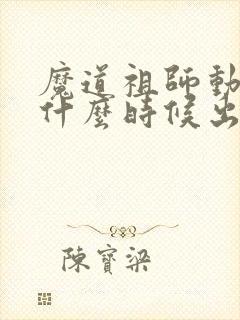 魔道祖師動
什麼時候出
陳寶梁